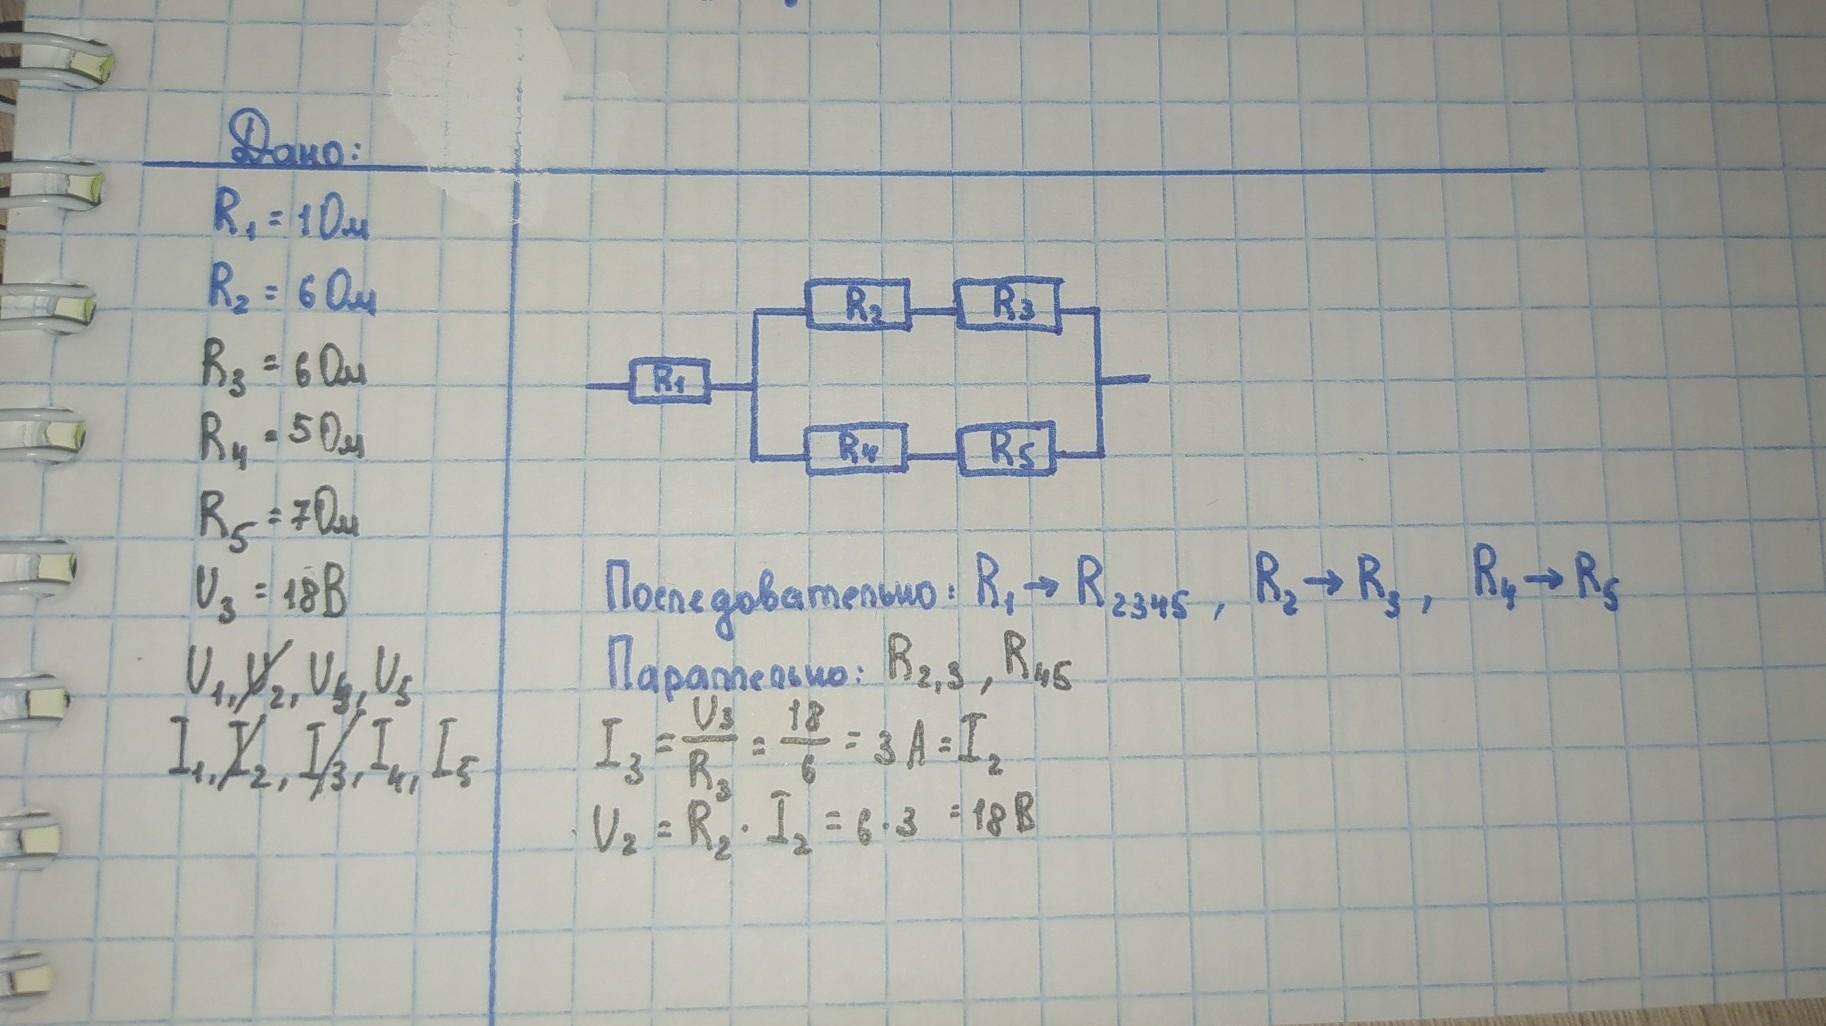 Дано:
R₁ = 1 Ом
R₂ = 6 Ом
R₃ = 6 Ом
R₄ = 5 Ом
R₅ = 7 Ом
U₃ = 18 В
U₁, U₂, U₄, U₅
I₁, I₂, I₃, I₄, I₅
R₂ R₃
R₁
R₄ R₅
Последовательно: R₁ → R₂₃₄₅, R₂ → R₃, R₄ → R₅
Параллельно: R₂,₃, R₄₅
I₃ = U₃/R₃ = 18/6 = 3 А = I₂
U₂ = R₂ · I₂ = 6 · 3 = 18 В